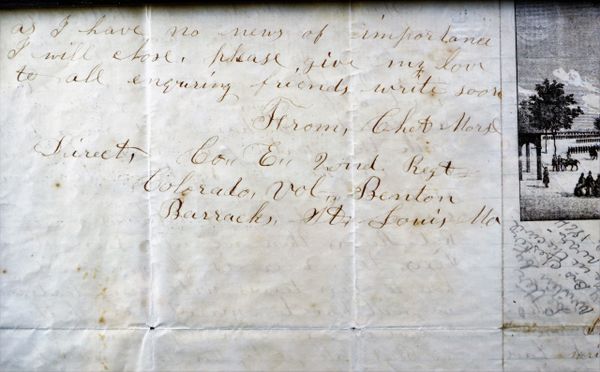 as I have no news of importance
I will close. please give my love
to all enquring friends write soon
From, Chet Mors
Direct, Co. E. 2nd. Regt
Colorado, Vol, Benton
Barracks, St. Louis Mo